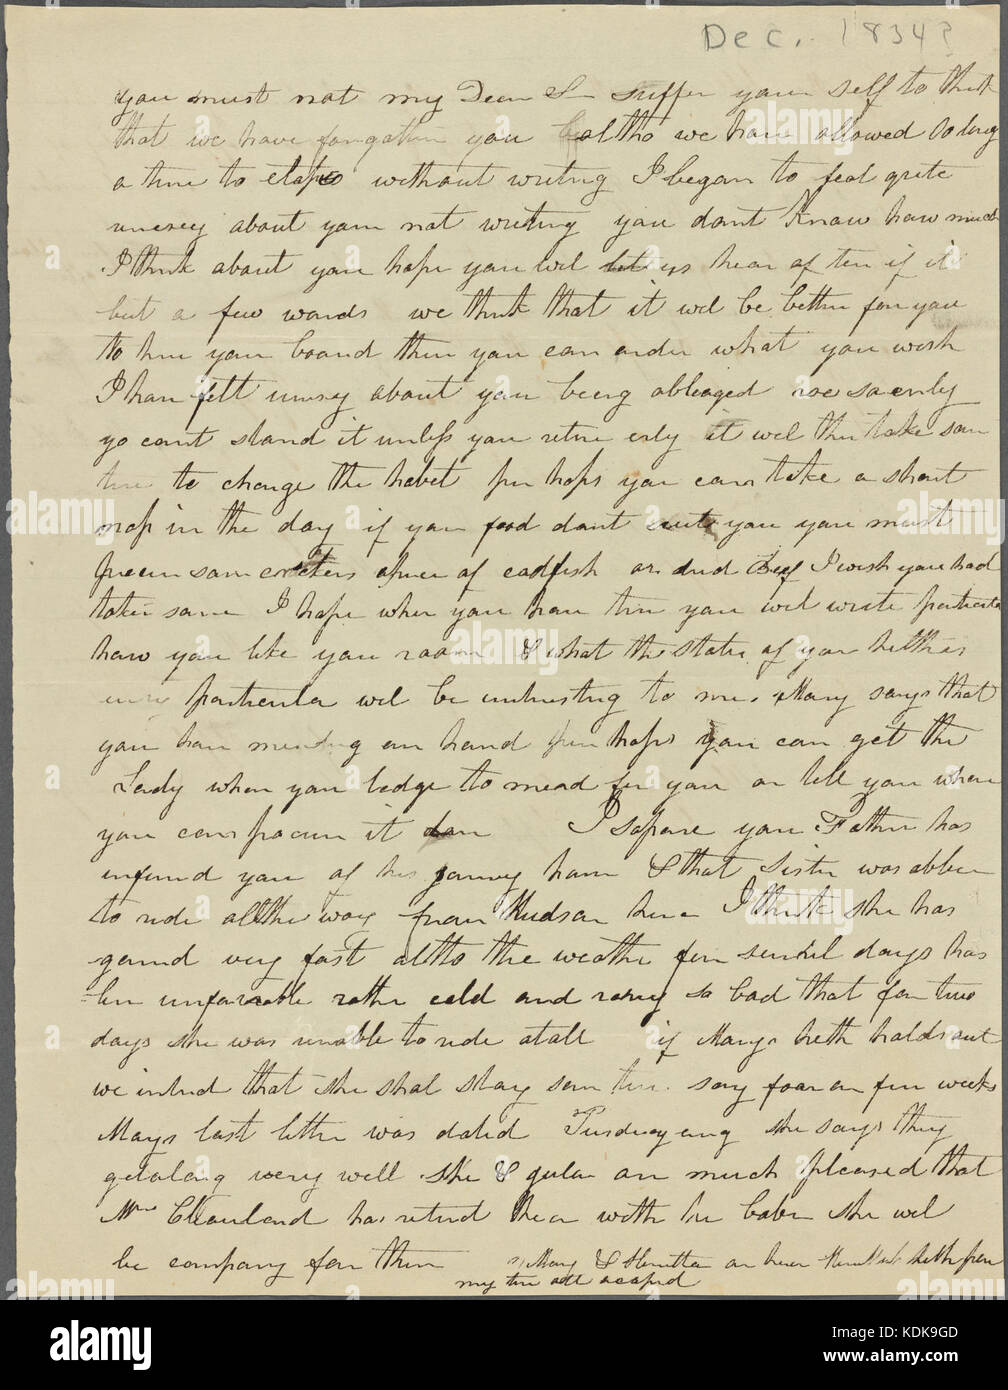 Dec. 1834?
you must not my Dear Son suffer your self to think
that we have forgotten you altho we have allowed so long
a time to elapse without writing I began to feel quite
uneasy about your not writing you dont know how much
I think about you hope you wil let us hear often if it
but a few words we think that it wil be better for you
to hire you board then you can order what you wish
I have felt unesy about you being obleaged rise so erly
yo cant stand it unless you retire erly it wil then take som
time to change the habet per haps you can take a short
nap in the day if your food dont suit you you must
procur som crackers a peice of codfish or dried Beef I wish you had
taken some I hope when you have time you wil write particular
how you like you room & what the state of your helth is
particular wil be interesting to me. Mary says that
you have mending on hand per haps you can get the
Lady when you lodge to mend for you or tell you where
you can procure it don I sopose you Father has
informd you of his jorney home & that Sister was abbel
to ride all the way from Hudson here I think she has
gaind very fast altho the weather for sevral days has
ben unfavorable rather cold and rainy so bad that for two
days she was unable to ride atall if Marys helth holds out
we intend that she shal stay som time say four or five weeks
Marys last letter was dated Tusday eng she says they
get along very well she & Julia are much pleased that
Mrs Cleaveland has returd there with her babe she wil
be company for them Mary & Henrietta are here
my time all ocupid
alamy
Image ID: KDK9GD
www.alamy.com